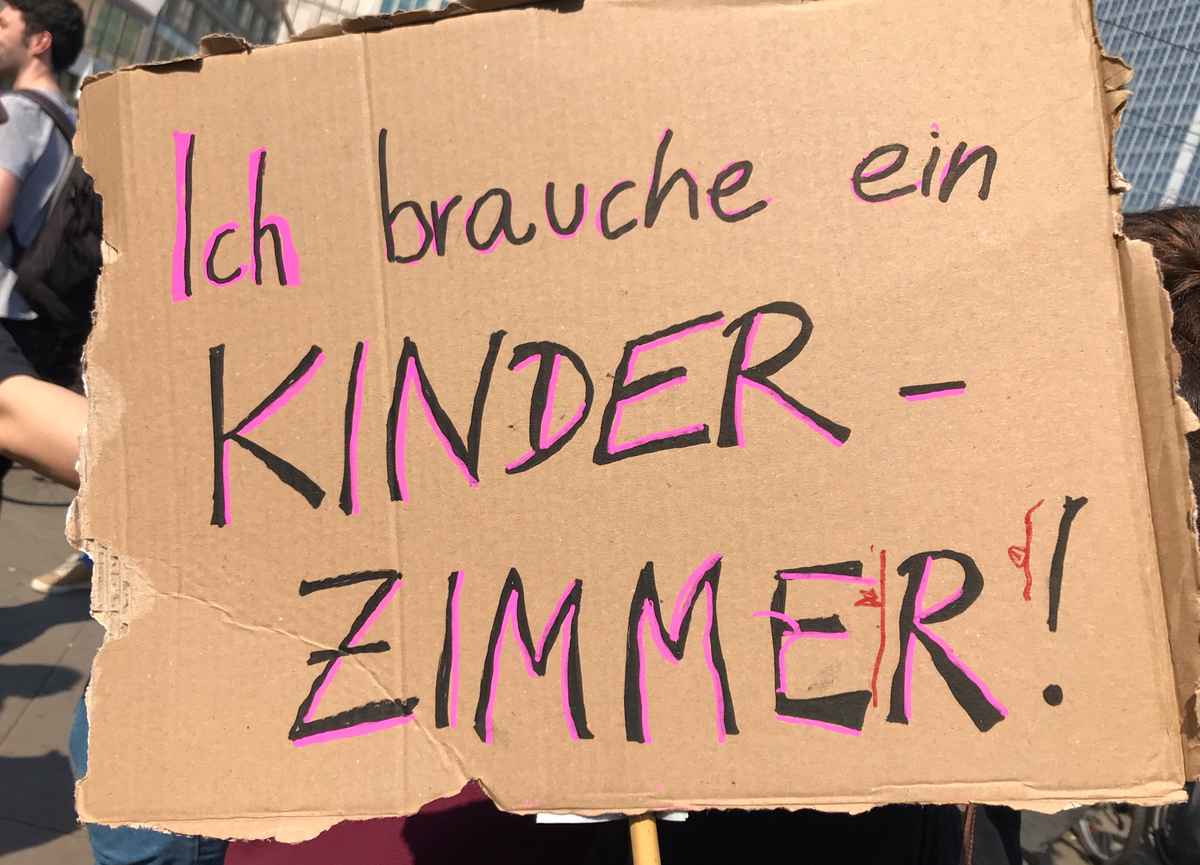 Ich brauche ein
KINDER-
ZIMMER!